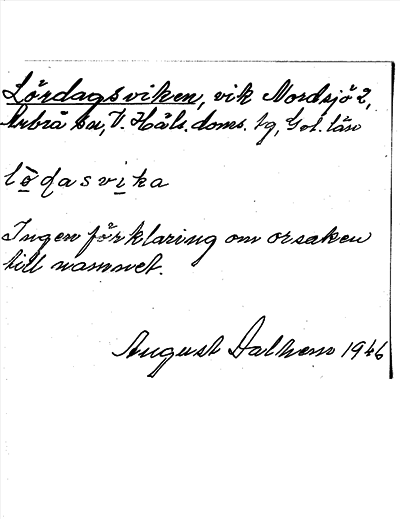 Lördagsviken, vik Nordsjö 2,
Arbrå sn, V. Häls. doms. tg, Gvl. län
lödasvika
Ingen förklaring om orsaken
till namnet.
August Dalhem 1946